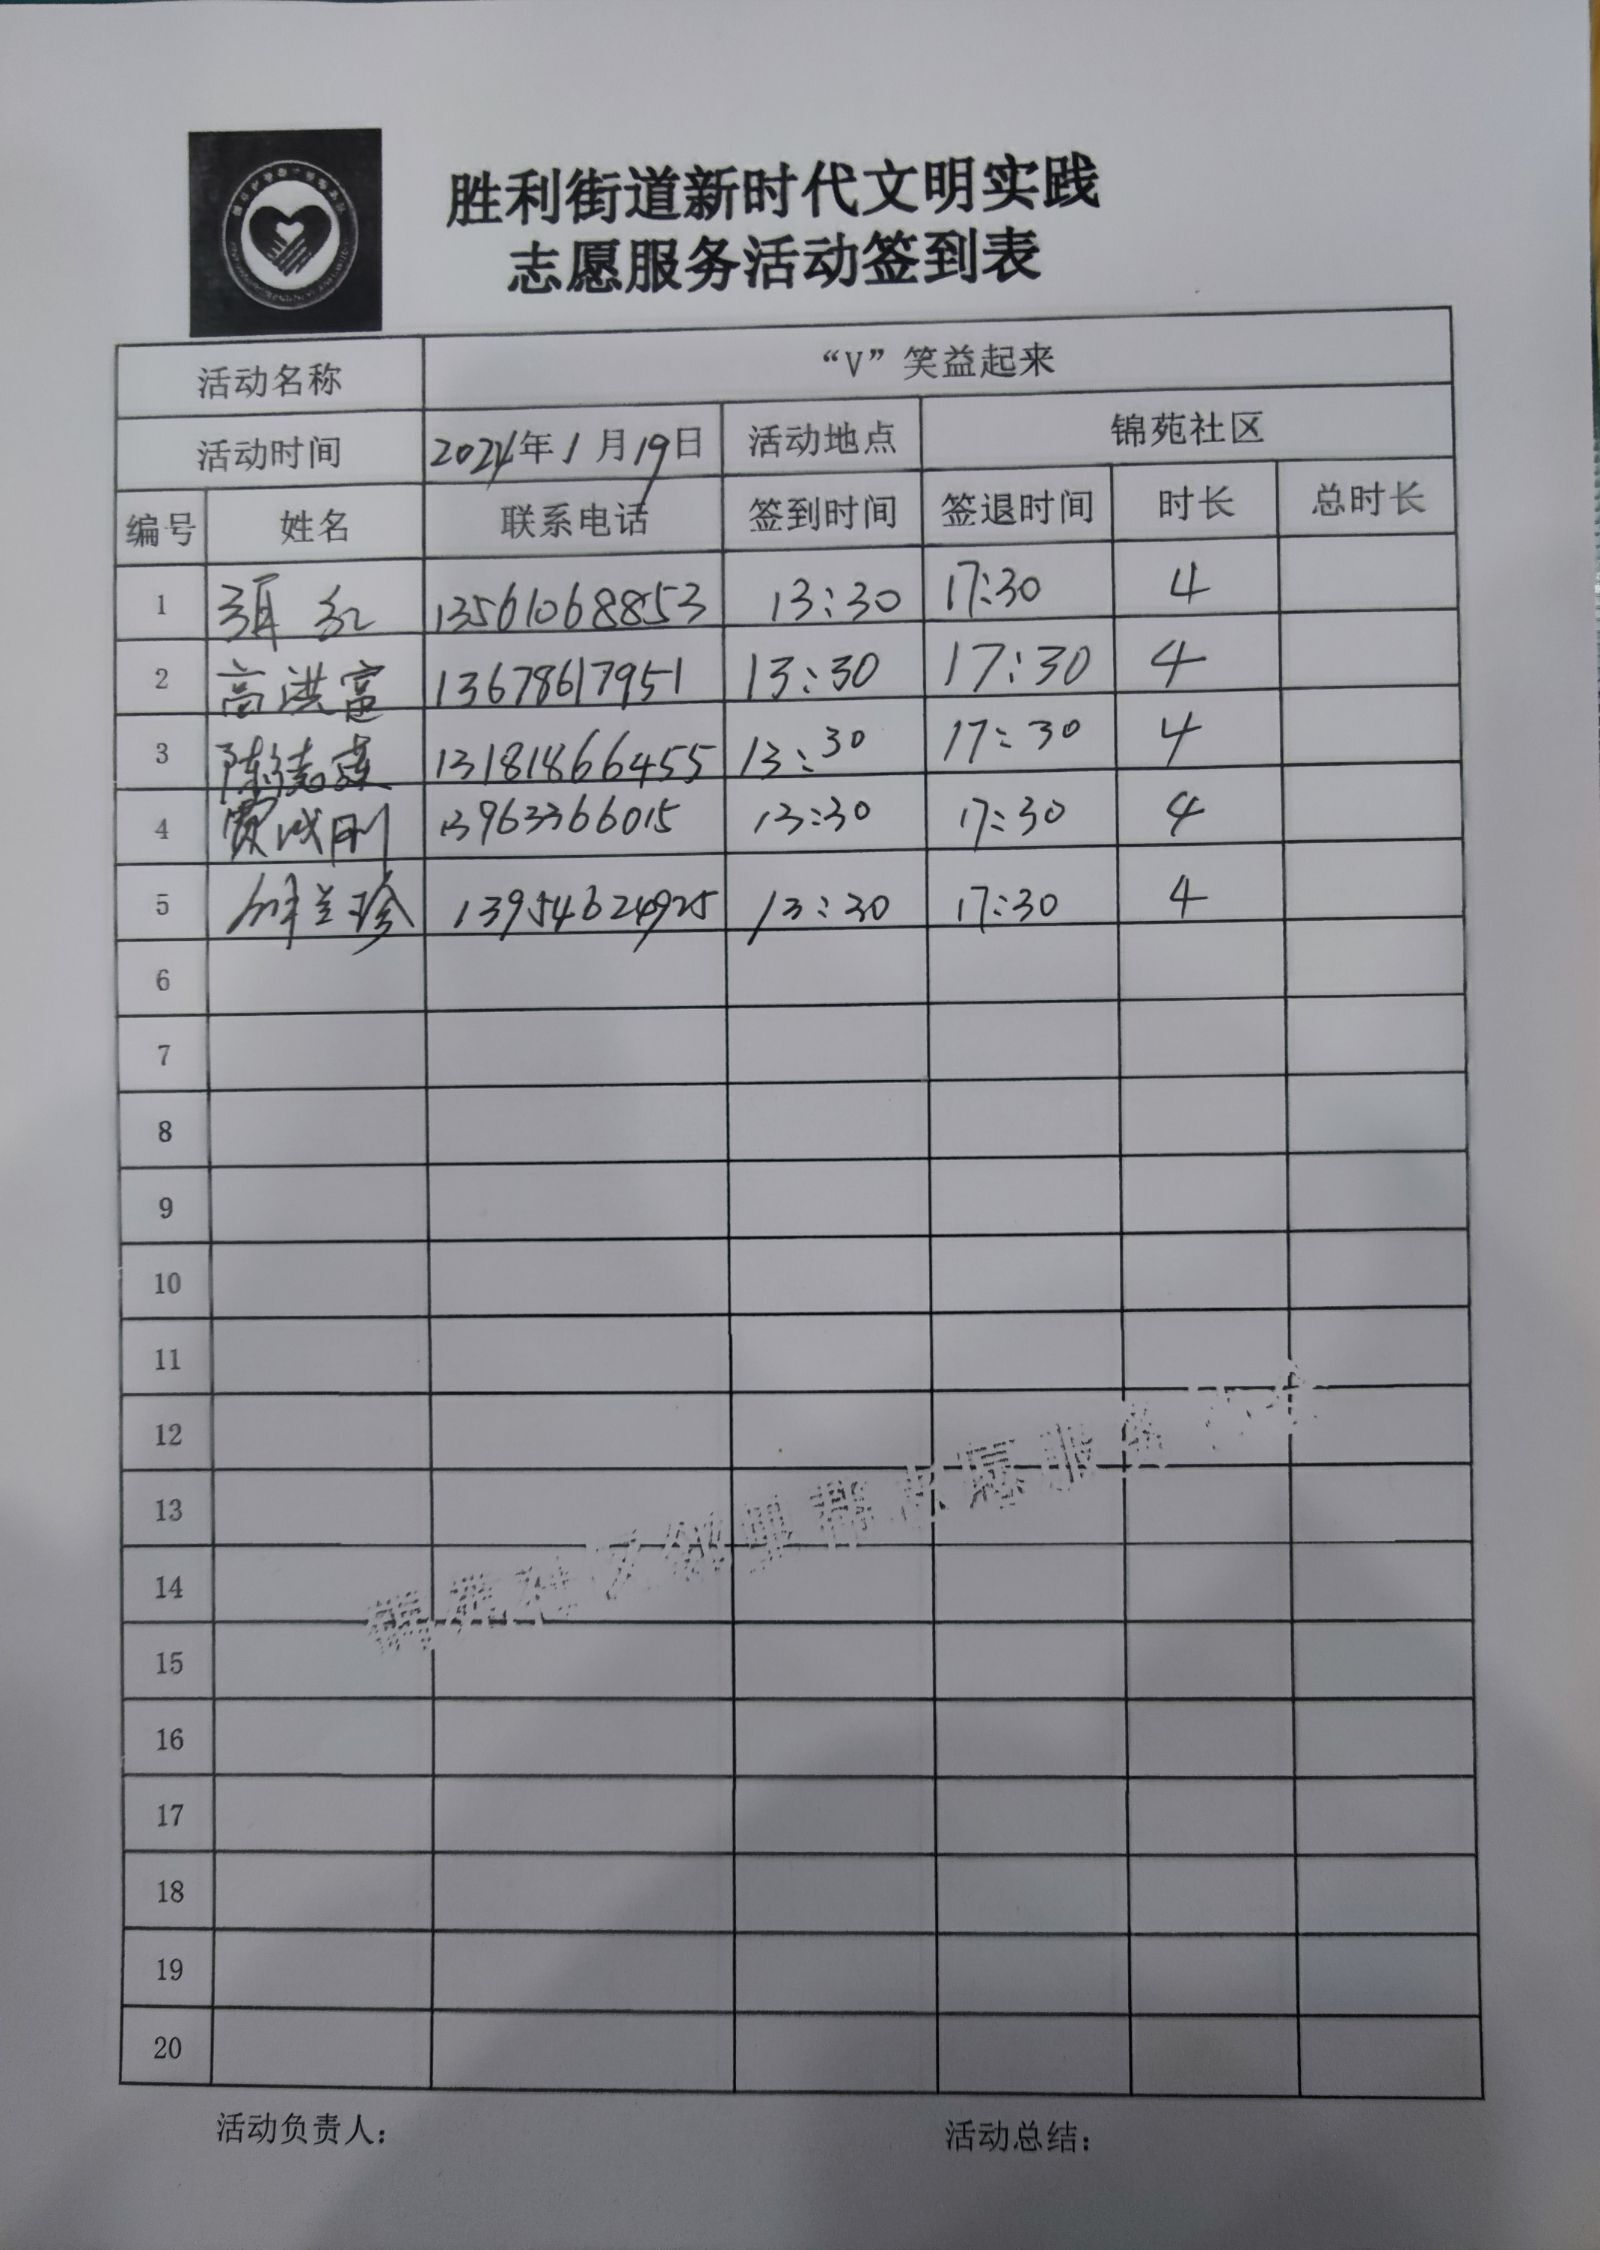 胜利街道新时代文明实践
志愿服务活动签到表
活动名称 “V”笑益起来
活动时间 2024年1月19日 活动地点 锦苑社区
编号 姓名 联系电话 签到时间 签退时间 时长 总时长
1 红 13561068853 13:30 17:30 4
2 高洪富 13678617951 13:30 17:30 4
3 陈 13181866455 13:30 17:30 4
4 贾成刚 13963366015 13:30 17:30 4
5 兰珍 13954624925 13:30 17:30 4
6
7
8
9
10
11
12
13
14
15
16
17
18
19
20
锦苑社区邻里帮志愿服务
活动负责人: 活动总结: